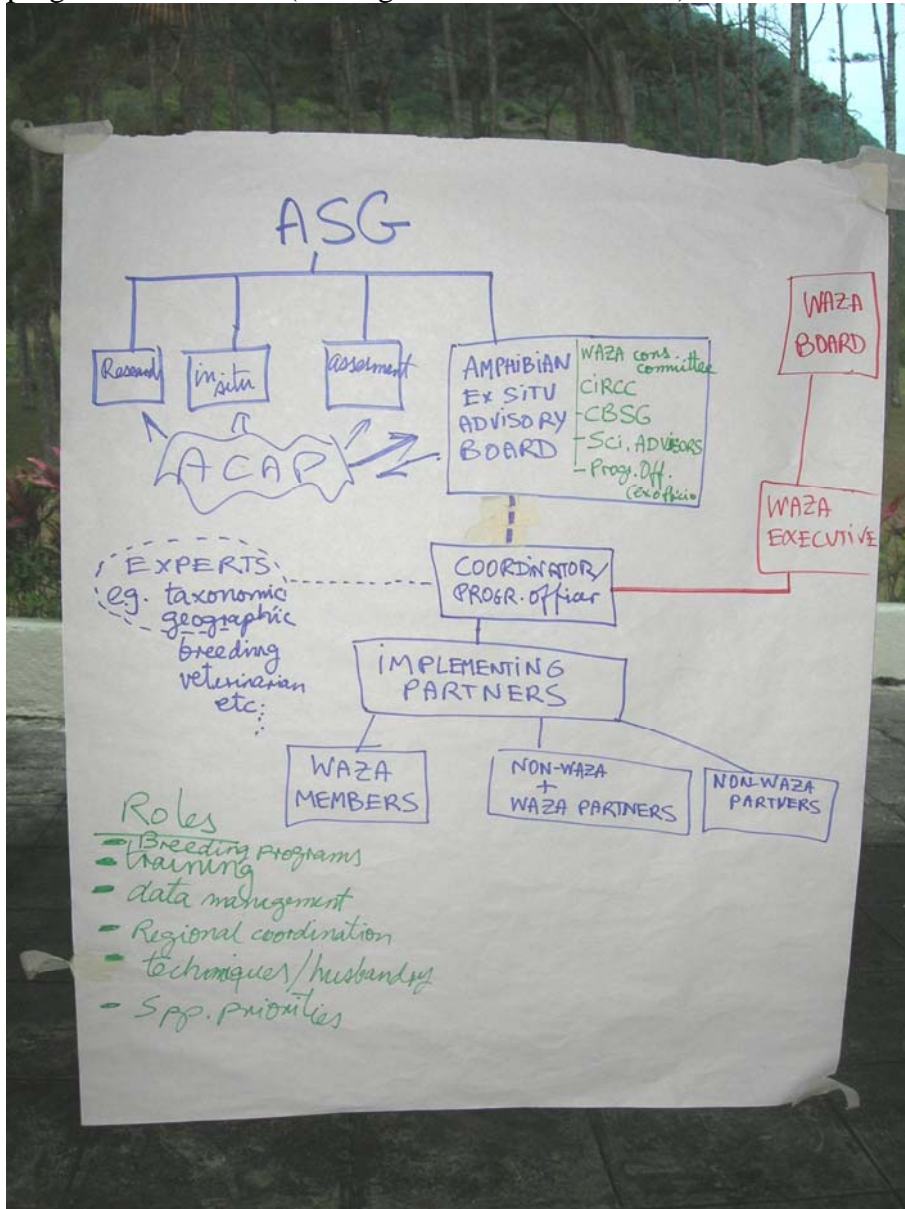 ASG
WAZA
BOARD
Research
in-situ
assesment
AMPHIBIAN
EX SITU
ADVISORY
BOARD
WAZA cons.
committee
CiRCC
-CBSG
-Sci. ADVISORS
-Progr. Off.
(ex officio
ACAP
WAZA
EXECUTIVE
EXPERTS
e.g. taxonomic
geographic
breeding
veterinarian
etc.
COORDINATOR/
PROGR. officer
iMPLEMENTiNG
PARTNERS
WAZA
MEMBERS
NON-WAZA
+
WAZA PARTNERS
NON-WAZA
PARTNERS
Roles
- Breeding programs
- training
- data management
- Regional coordination
- techniques/husbandry
- Spp. priorities